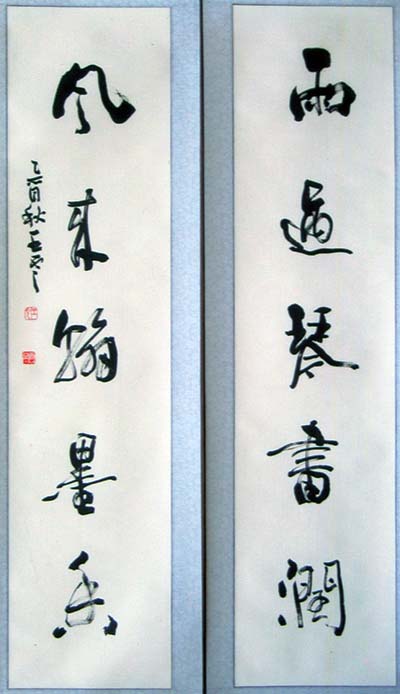 雨過琴書潤
風來翰墨香
乙酉秋